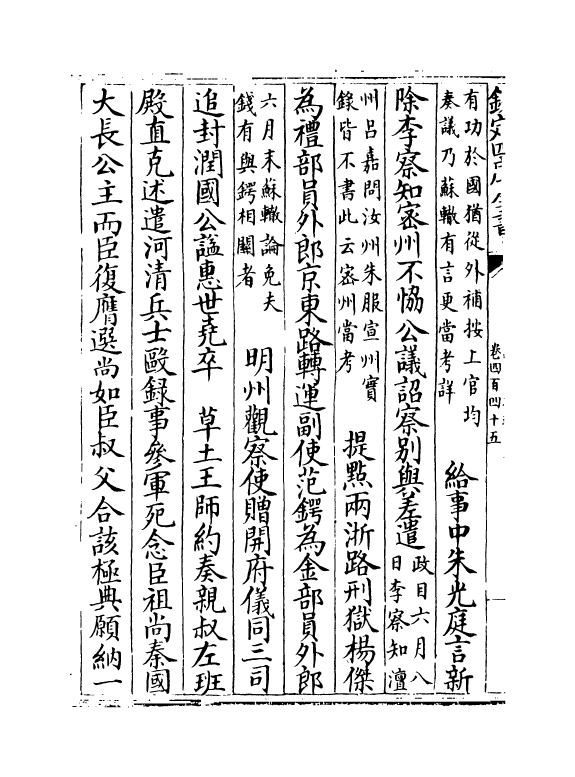 欽定四庫全書
卷四百四十五
有功於國猶從外補按上官均
奏議乃蘇轍有言更當考詳
給事中朱光庭言新
除李察知密州不恊公議詔察别與差遣
政目六月八
日李察知澶
州吕嘉問汝州朱服宣州實
錄皆不書此云密州當考
提點兩浙路刑獄楊傑
為禮部員外郎京東路轉運副使范鍔為金部員外郎
六月末蘇轍論免夫
錢有與鍔相關者
明州觀察使贈開府儀同三司
追封潤國公諡惠世堯卒 草土王師約奏親叔左班
殿直克述遣河清兵士毆録事參軍死念臣祖尚秦國
大長公主而臣復膺選尚如臣叔父合該極典願納一